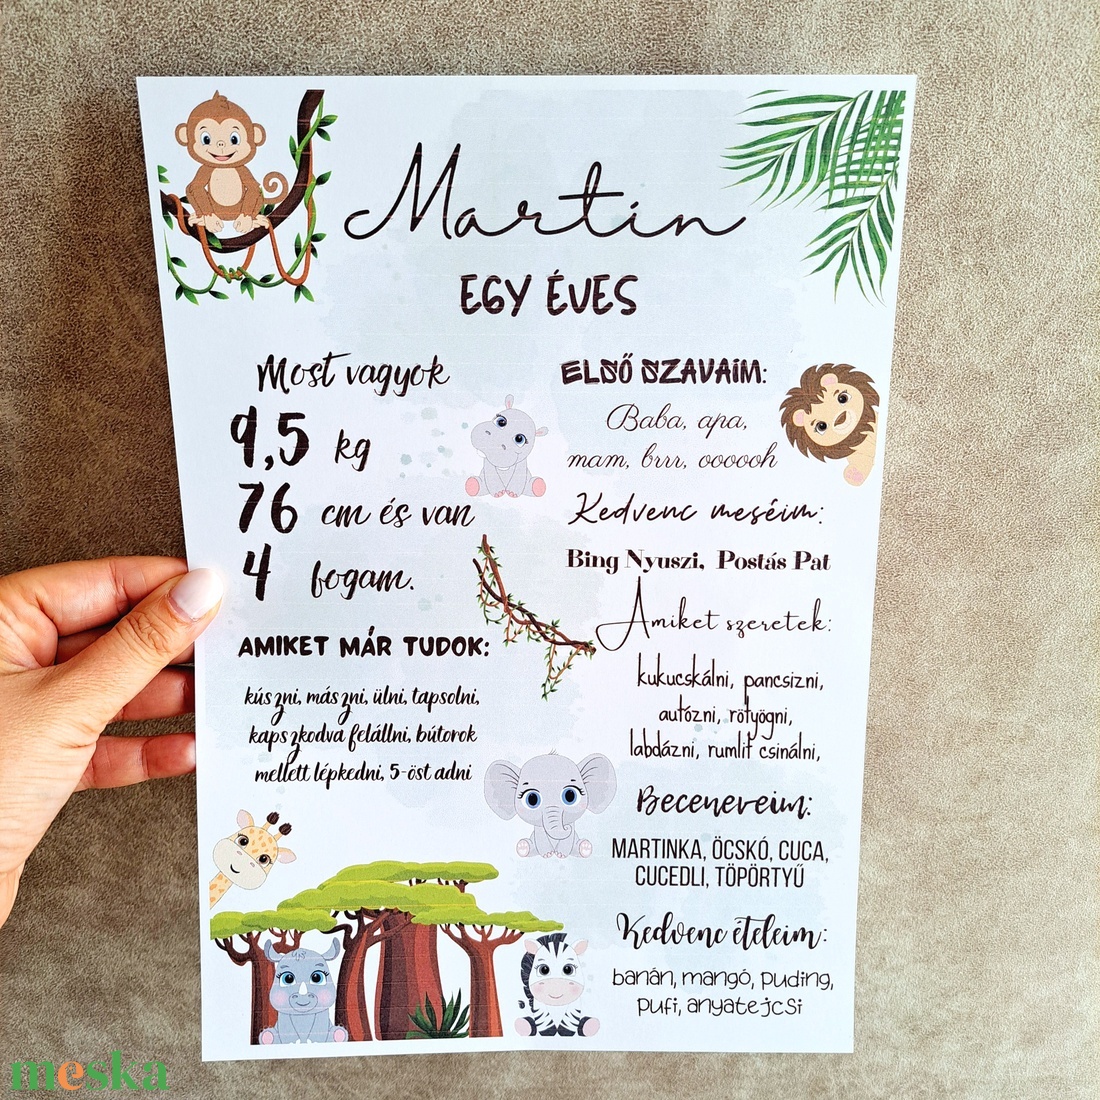 Martin
EGY ÉVES
Most vagyok
9,5 kg
76 cm és van
4 fogam.
AMIKET MÁR TUDOK:
kúszni, mászni, ülni, tapsolni,
kapszkodva felállni, bútorok
mellett lépkedni, 5-öst adni
ELSŐ SZAVAIM:
Baba, apa,
mam, brrr, oooooh
Kedvenc meséim:
Bing Nyuszi, Postás Pat
Amiket szeretek:
kukucskálni, pancsizni,
autózni, rötyögni,
labdázni, rumlit csinálni,
Beceneveim:
MARTINKA, ÖCSKÓ, CUCA,
CUCEDLI, TÖPÖRTYŰ
Kedvenc ételeim:
banán, mangó, puding,
pufi, anyatejcsi
meska